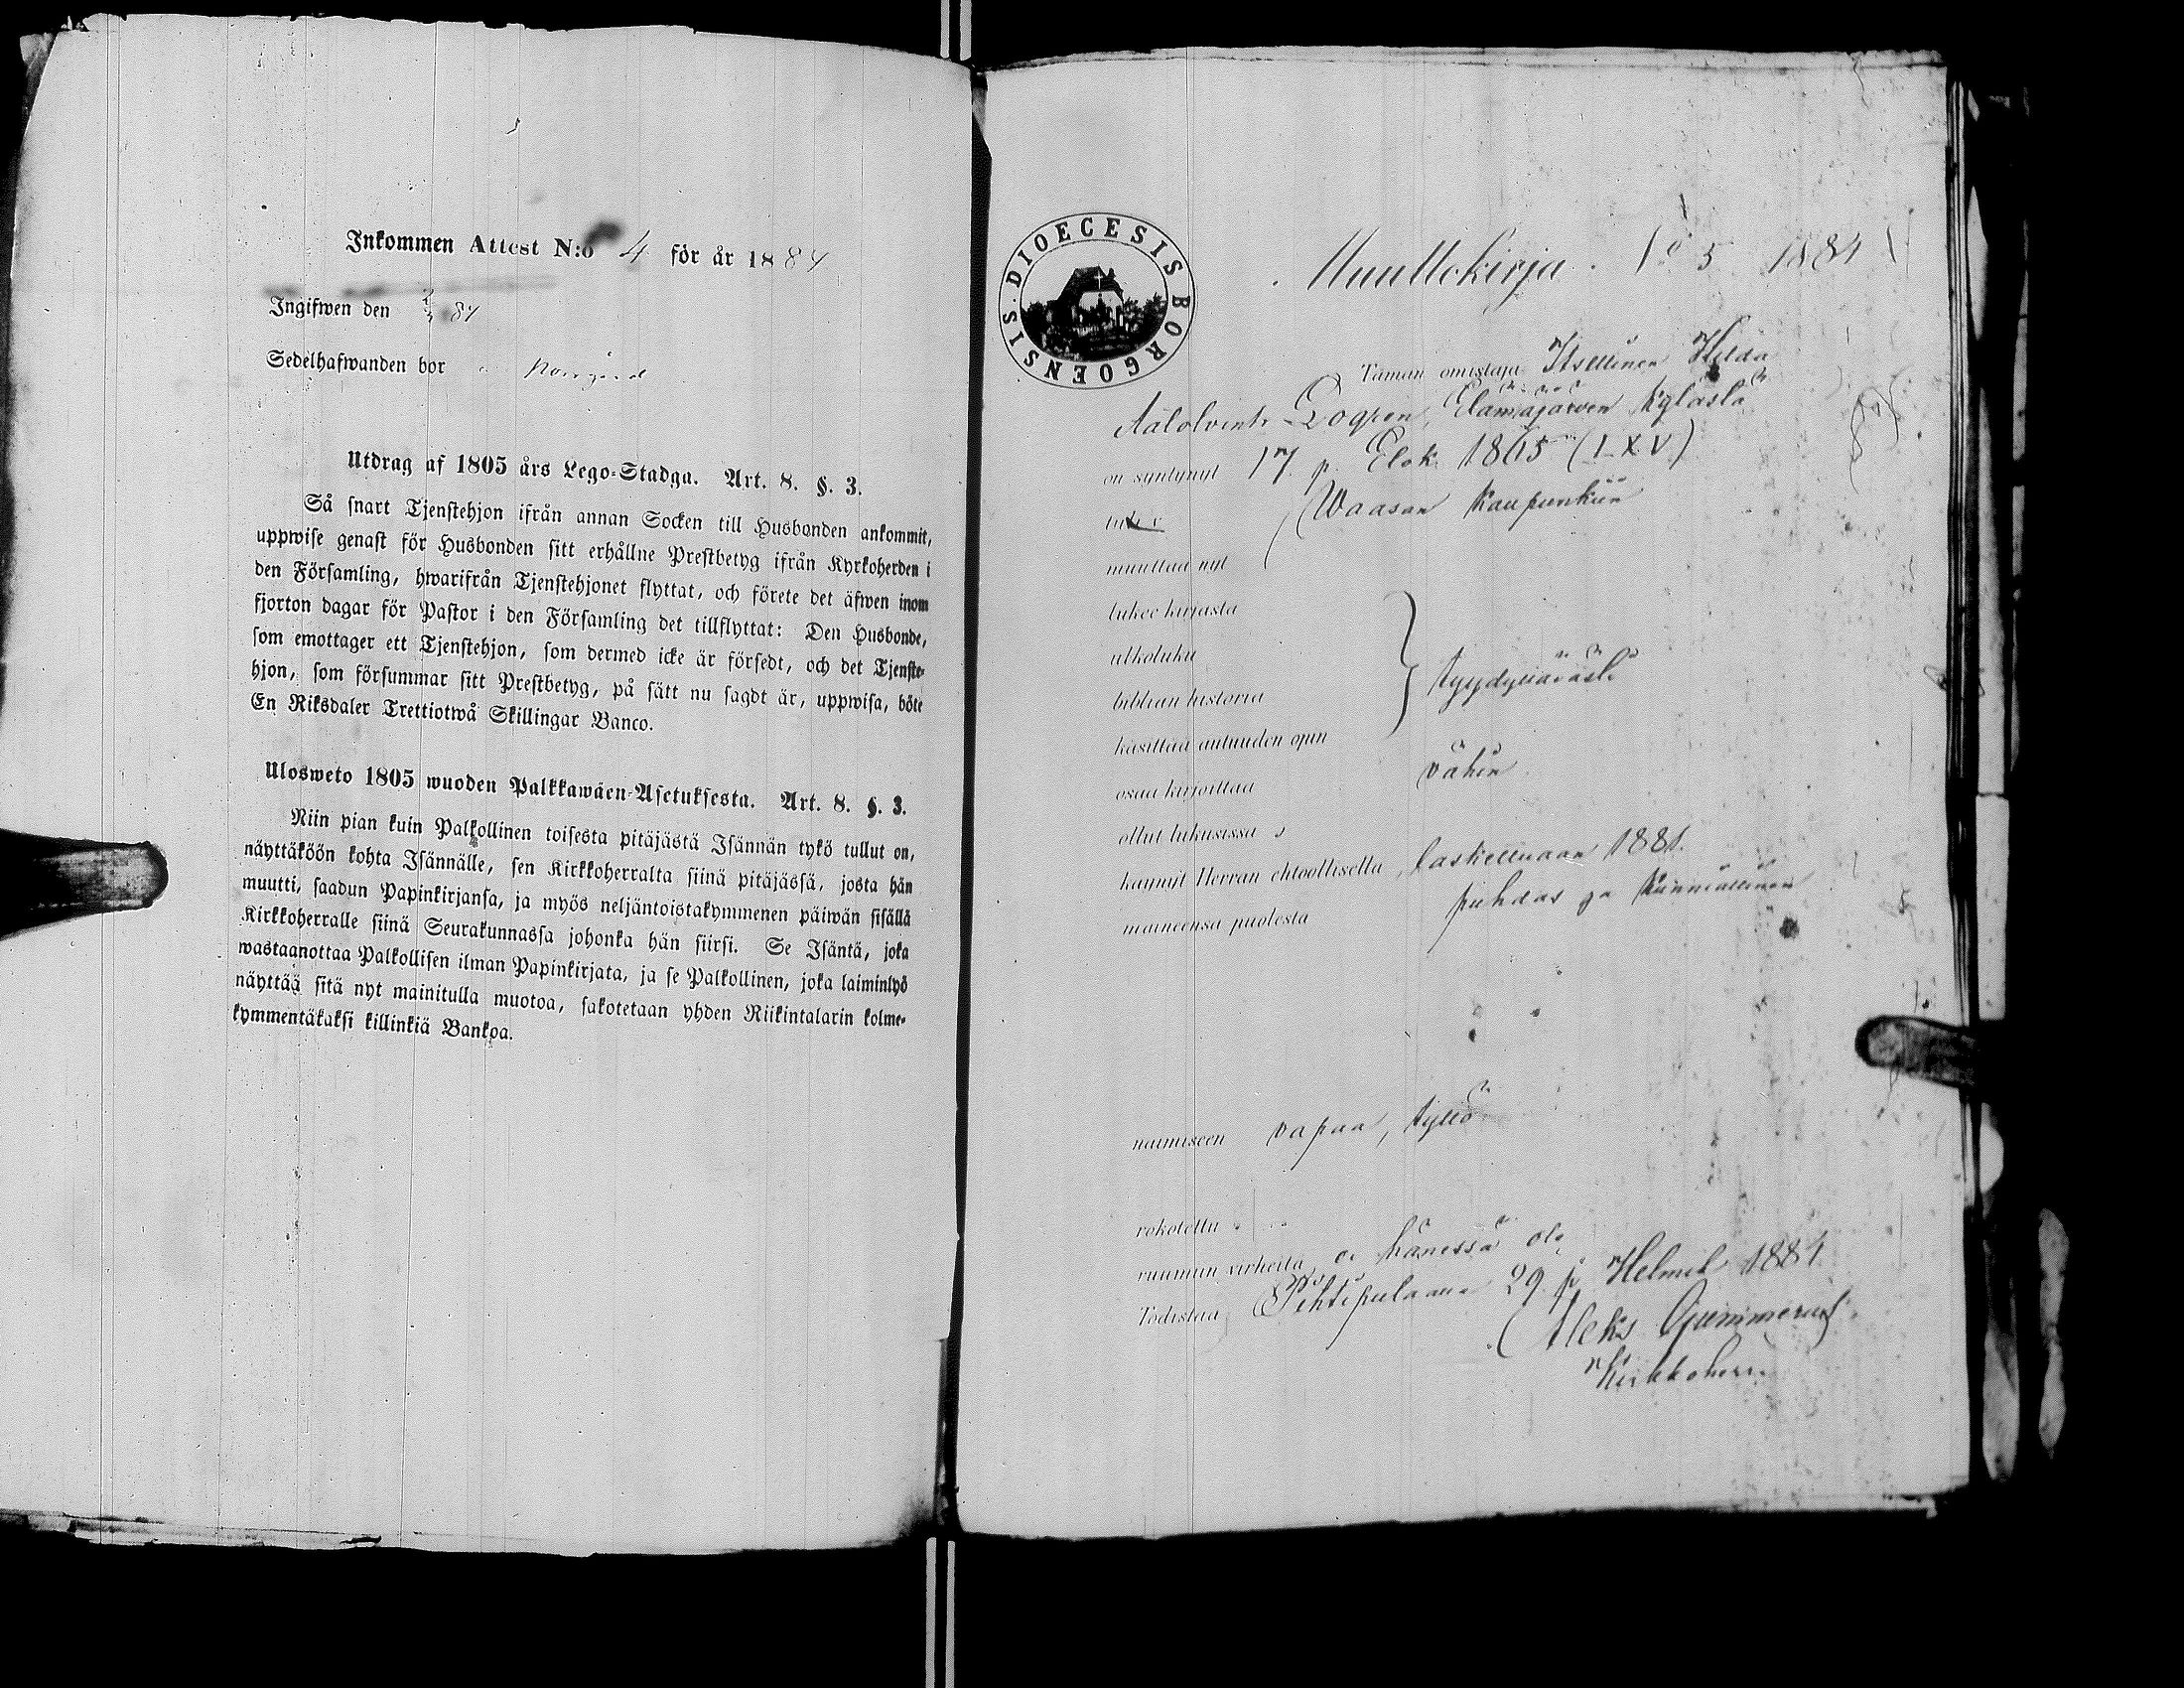 Inkommen Attest N:o 4 för år 1884
Ingifwen den 84
Sedelhafwanden bor
Utdrag af 1805 års Lego-Stadga. Art. 8. §. 3.
Så snart Tjenstehjon ifrån annan Socken till Husbonden ankommit,
uppwise genast för Husbonden sitt erhållne Prestbetyg ifrån Kyrkoherden i
den Församling, hwarifrån Tjenstehjonet flyttat, och förete det äfwen inom
fjorton dagar för Pastor i den Församling det tillflyttat: Den Husbonde,
som emottager ett Tjenstehjon, som dermed icke är försedt, och det Tjenste-
hjon, som försummar sitt Prestbetyg, på sätt nu sagdt är, uppwisa, böte
En Riksdaler Trettiotwå Skillingar Banco.
Ulosweto 1805 wuoden Palkkawäen-Asetuksesta. Art. 8. §. 3.
Niin pian kuin Palkollinen toisesta pitäjästä Isännän tykö tullut on,
näyttäköön kohta Isännälle, sen Kirkkoherralta siinä pitäjässä, josta hän
muutti, saadun Papinkirjansa, ja myös neljäntoistakymmenen päiwän sisällä
Kirkkoherralle siinä Seurakunnassa johonka hän siirsi. Se Isäntä, joka
wastaanottaa Palkollisen ilman Papinkirjata, ja se Palkollinen, joka laiminlyö
näyttää sitä nyt mainitulla muotoa, sakotetaan yhden Riikintalarin kolme-
kymmentäkaksi killinkiä Bankoa.
DIOECESIS BORGOENSIS
Muuttokirja. No 5 1884
Tämän omistaja Itsellinen Hilda
Elämäjärven kylästä
on syntynyt 17 p. Elok. 1865 (LXV)
muuttaa nyt Waasan kaupunkiin
lukee kirjasta
ulkoluku
biblian historia
tyydyttävästi
käsittää autuuden opin
osaa kirjoittaa vähin
ollut lukusissa
käynyt Herran ehtoollisella, laskettuaan 1881.
maineensa puolesta puhdas ja kunniallinen
naimiseen vapaa, tyttö
rokotettu
ruumiin virheitä ei hänessä ole
Todistaa Pihtiputaalla 29 p. Helmik. 1884.
Aleks. Gummerus
Kirkkoherra